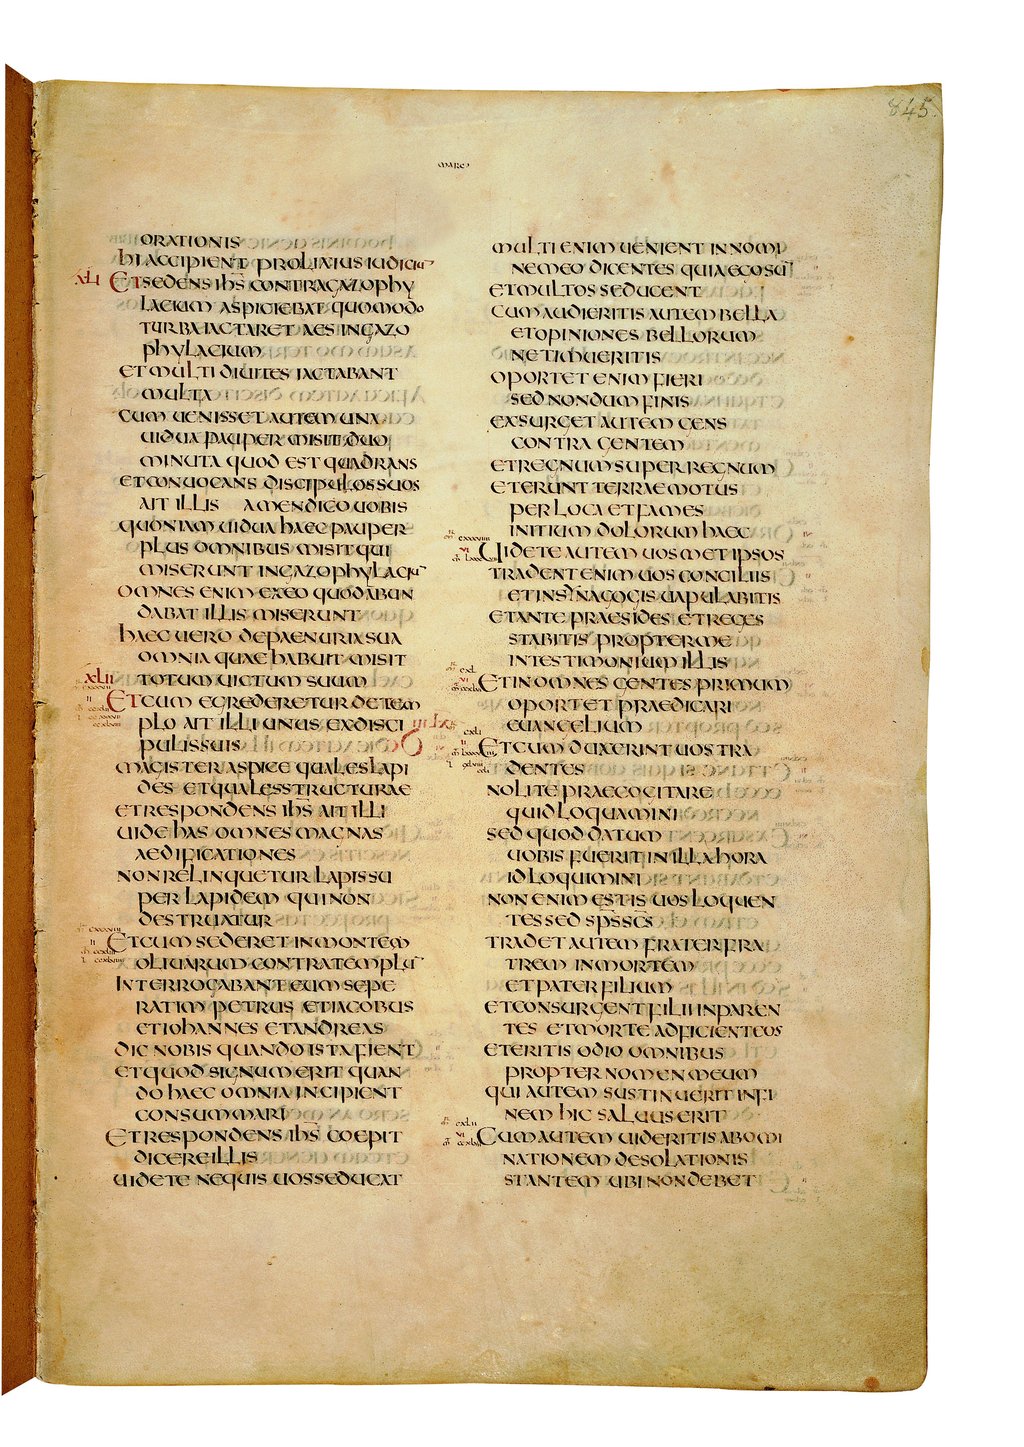 845
MARC
ORATIONIS
hI ACCIPIENT PROLIXIUS IUDICIU
XLI ET SEDENS IhS CONTRA GAZOPhY
LACIUM ASPICIEBAT QUOMODO
TURBA IACTARET AES IN GAZO
PhYLACIUM
ET MULTI DIUITES IACTABANT
MULTA
CUM UENISSET AUTEM UNA
UIDUA PAUPER MISIT DUO
MINUTA QUOD EST QUADRANS
ET CONUOCANS DISCIPULOS SUOS
AIT ILLIS AMEN DICO UOBIS
QUONIAM UIDUA hAEC PAUPER
PLUS OMNIBUS MISIT QUI
MISERUNT IN GAZOPhYLACIU
OMNES ENIM EX EO QUOD ABUN
DABAT ILLIS MISERUNT
hAEC UERO DE PAENURIA SUA
OMNIA QUAE hABUIT MISIT
XLII TOTUM UICTUM SUUM
ET CUM EGREDERETUR DE TEM
PLO AIT ILLI UNUS EX DISCI
PULIS SUIS
MAGISTER ASPICE QUALES LAPI
DES ET QUALES STRUCTURAE
ET RESPONDENS IhS AIT ILLI
UIDE hAS OMNES MAGNAS
AEDIFICATIONES
NON RELINQUETUR LAPIS SU
PER LAPIDEM QUI NON
DESTRUATUR
ET CUM SEDERET IN MONTEM
OLIUARUM CONTRA TEMPLU
INTERROGABANT EUM SEPE
RATIM PETRUS ET IACOBUS
ET IOhANNES ET ANDREAS
DIC NOBIS QUANDO ISTA FIENT
ET QUOD SIGNUM ERIT QUAN
DO hAEC OMNIA INCIPIENT
CONSUMMARI
ET RESPONDENS IhS COEPIT
DICERE ILLIS
UIDETE NE QUIS UOS SEDUCAT
MULTI ENIM UENIENT IN NOMI
NE MEO DICENTES QUIA EGO SUM
ET MULTOS SEDUCENT
CUM AUDIERITIS AUTEM BELLA
ET OPINIONES BELLORUM
NE TIMUERITIS
OPORTET ENIM FIERI
SED NONDUM FINIS
EXSURGET AUTEM GENS
CONTRA GENTEM
ET REGNUM SUPER REGNUM
ET ERUNT TERRAE MOTUS
PER LOCA ET FAMES
INITIUM DOLORUM hAEC
UIDETE AUTEM UOSMET IPSOS
TRADENT ENIM UOS CONCILIIS
ET IN SYNAGOGIS UAPULABITIS
ET ANTE PRAESIDES ET REGES
STABITIS PROPTER ME
IN TESTIMONIUM ILLIS
ET IN OMNES GENTES PRIMUM
OPORTET PRAEDICARI
EUANGELIUM
ET CUM DUXERINT UOS TRA
DENTES
NOLITE PRAECOGITARE
QUID LOQUAMINI
SED QUOD DATUM
UOBIS FUERIT IN ILLA hORA
ID LOQUIMINI
NON ENIM ESTIS UOS LOQUEN
TES SED SPS SCS
TRADET AUTEM FRATER FRA
TREM IN MORTEM
ET PATER FILIUM
ET CONSURGENT FILII IN PAREN
TES ET MORTE ADFICIENT EOS
ET ERITIS ODIO OMNIBUS
PROPTER NOMEN MEUM
QUI AUTEM SUSTINUERIT IN FI
NEM hIC SALUUS ERIT
CUM AUTEM UIDERITIS ABOMI
NATIONEM DESOLATIONIS
STANTEM UBI NON DEBET